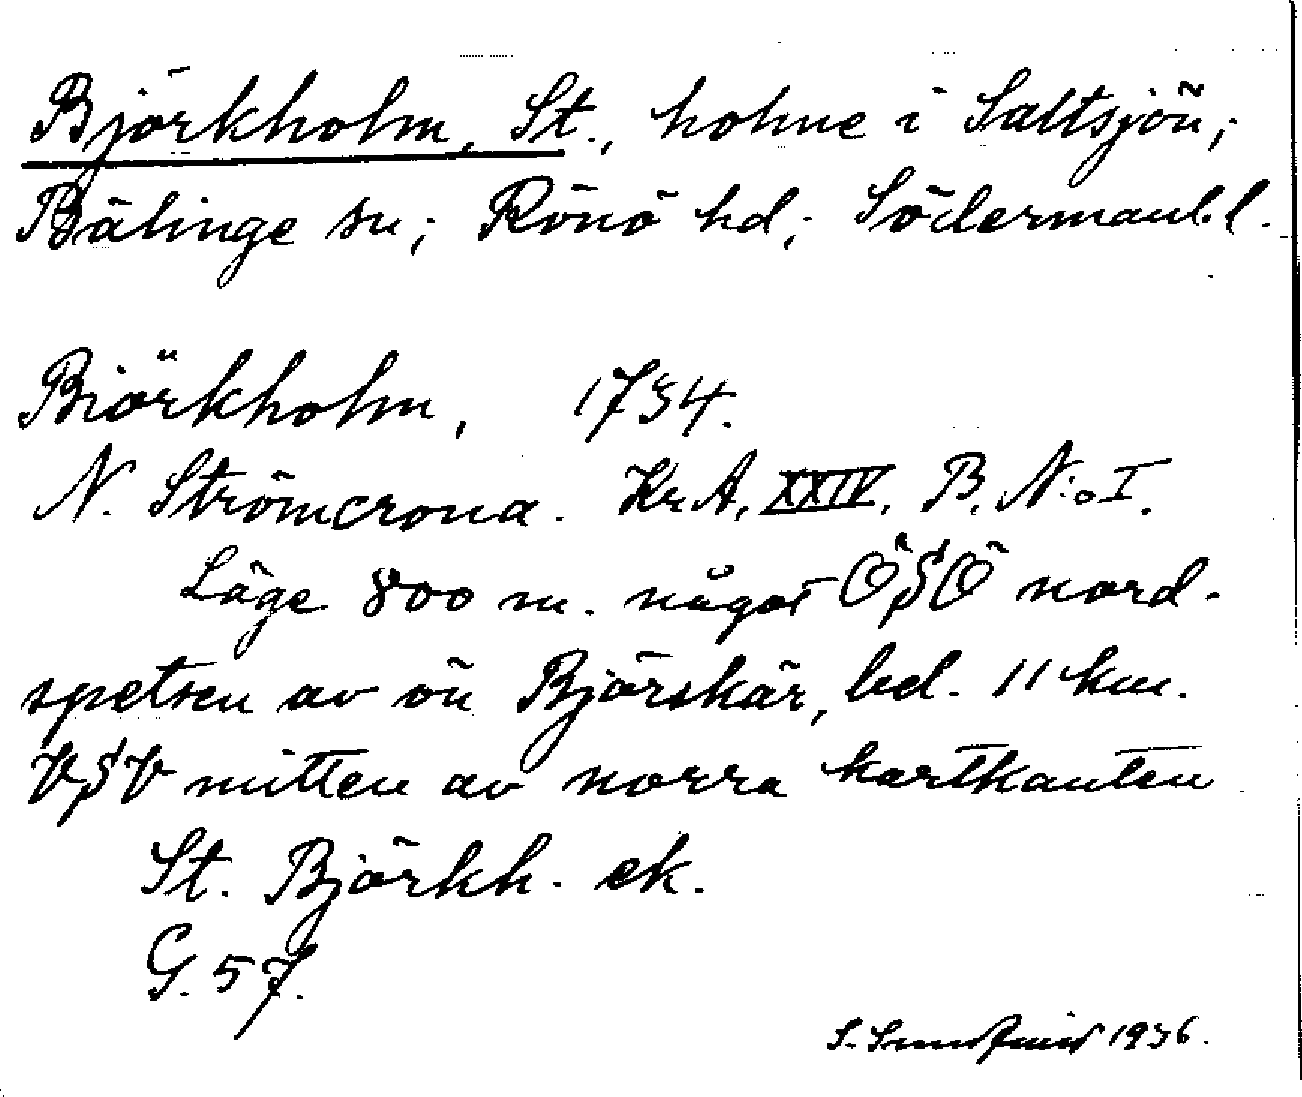 Björkholm, St., holme i Saltsjön;
Bälinge sn; Rönö hd; Södermanl. l.
Biörkholm, 1734.
N. Strömcrona. Kr. A. XXIV. B. N:o I.
Läge 800 m. något ÖSÖ nord-
spetsen av ön Björskär, bel. 11 km.
VSV mitten av norra kartkanten
St. Björkh. ek.
G. 57.
S. 1936.